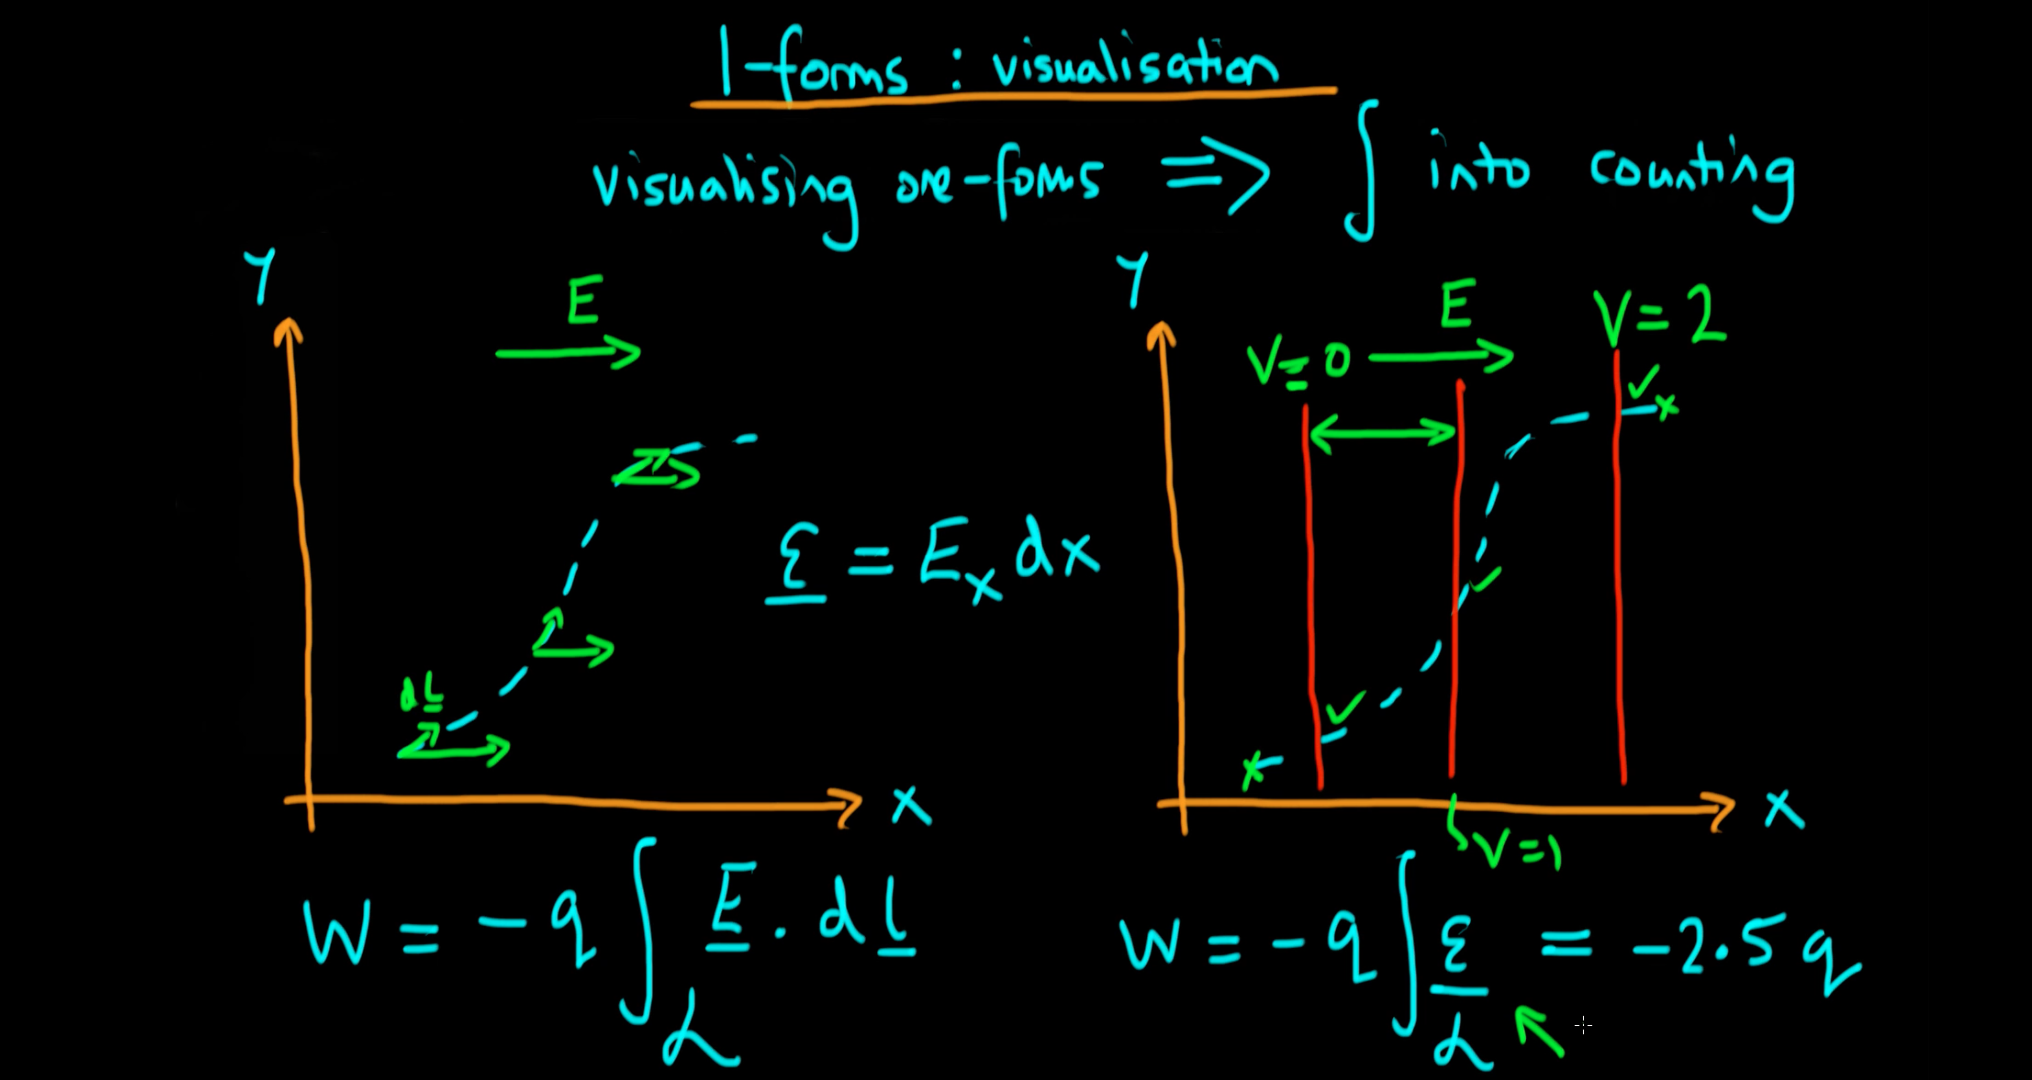 1-forms : visualisation
visualising one-foms ⇒ ∫ into counting
Y
E
dL
ℰ = Eₓ dx
X
W = -q ∫_L E . dL
Y
V = 0
E
V = 2
X
V = 1
W = -q ∫_L ℰ = -2.5 q